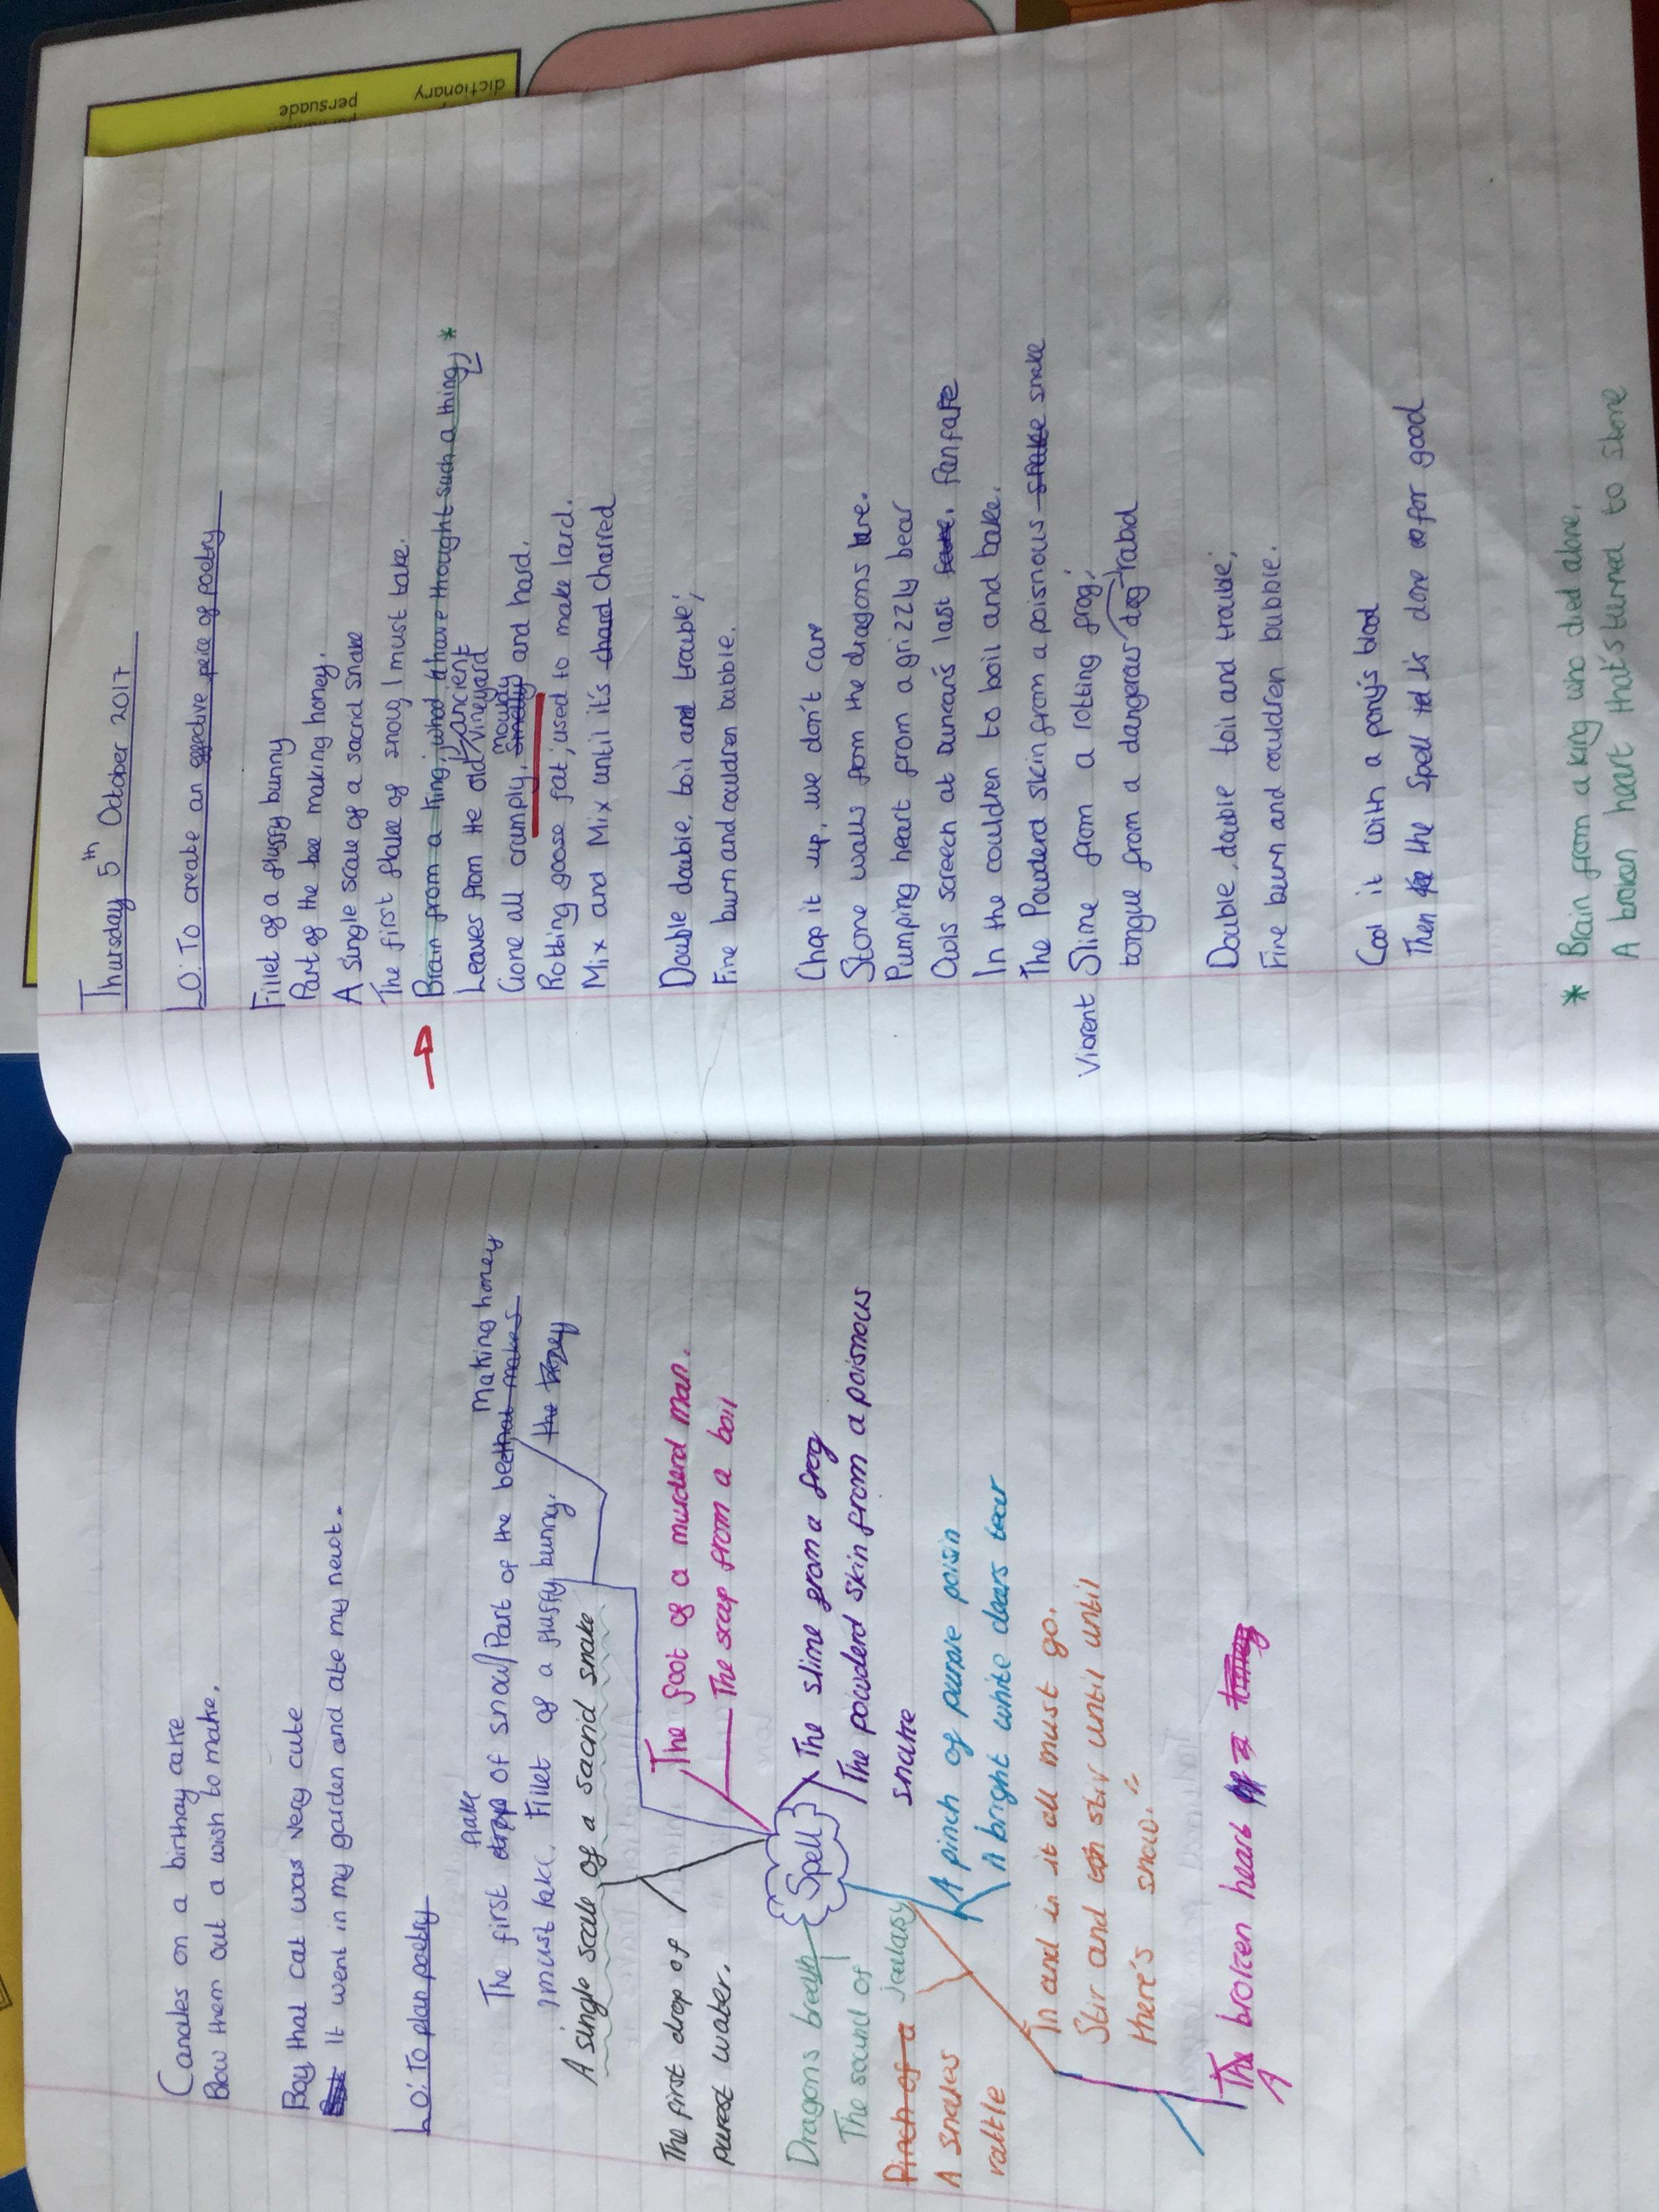 Candles on a birthay cake
Blow them out a wish to make.
Boy that cat was very cute
It went in my garden and ate my newt.
LO: To plan poetry
Making honey
flake
The first drop of snow/Part of the bee that makes
the honey
i must take. Fillet of a fluffy bunny.
A single scale of a sacrid snake
The foot of a murderd man.
The scap from a boil
The first drop of
purest water.
Spell
The slime from a frog
The powderd skin from a poisnous
snake
Dragons breath
The sound of
jealasy
Pinch of a
A snakes
rattle
A pinch of purple poisin
A bright white dears tear
In and in it all must go.
Stir and stir until until
there's snow.
The broken heart of a
A
Thursday 5th October 2017
LO: To create an effective peice of poetry
Fillet of a fluffy bunny
Part of the bee making honey.
A single scale of a sacrid snake
The first flake of snow I must take.
Brain from a king; who'd have thought such a thing, *
ancient
Leaves from the old vineyard
mouldy
Gone all crumply, smelly and hard.
Rotting goose fat; used to make lard.
Mix and Mix until it's chard charred
Double double, boil and trouble;
Fire burn and couldren bubble.
Chop it up, we don't care
Stone walls from the dragons lare.
Pumping heart from a grizzly bear
Owls screech at Duncan's last fanfare
In the couldren to boil and bake.
The Powderd skin from a poisnous snake snake
Vibrent Slime from a rotting frog;
tongue from a dangerous dog rabid
Double, double toil and trouble;
Fire burn and couldren bubble.
Cool it with a pony's blood
Then the Spell is done for good
* Brain from a king who died alone,
A broken heart that's turned to stone
dictionary
persuade